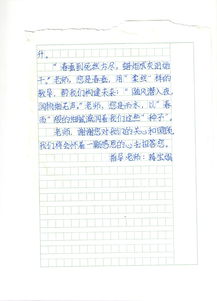 升。
"春蚕到死丝方尽，蜡炬成灰泪始
干。"老师，您是春蚕，用"柔丝"样的
教导，帮我们构建未来；"随风潜入夜，
润物细无声。"老师，您是雨水，以"春
雨"般的细腻滋润着我们这些"种子"。
老师，谢谢您对我们的关心和照顾，
我们将会怀着一颗感恩的心去报答您。
指导老师：